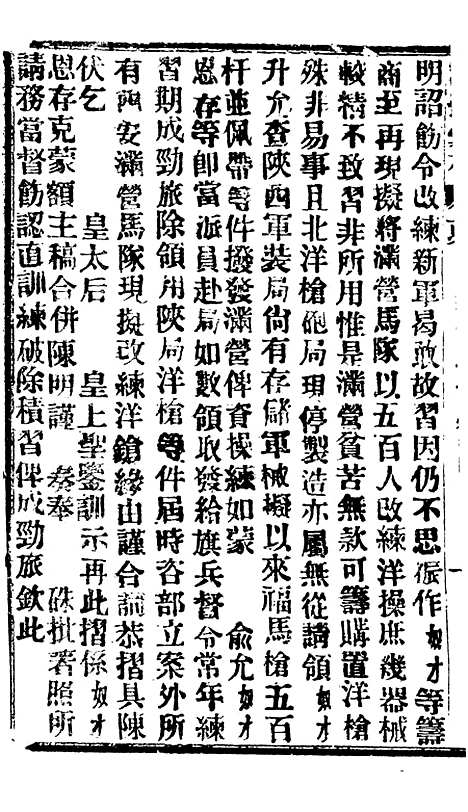 明詔飭令改練新軍曷敢故習因仍不思振作奴才等籌
商至再現擬將滿營馬隊以五百人改練洋操庶幾器械
較精不致習非所用惟是滿營貧苦無款可籌購置洋槍
殊非易事且北洋槍砲局現停製造亦屬無從請領奴才
升允查陝西軍裝局尙有存儲軍械擬以來福馬槍五百
杆並佩帶等件撥發滿營俾資操練如蒙　俞允奴才
恩存等卽當派員赴局如數領取發給旗兵督令常年練
習期成勁旅除領用陝局洋槍等件屆時咨部立案外所
有西安滿營馬隊現擬改練洋鎗緣由謹合詞恭摺具陳
伏乞　皇太后　皇上聖鑒訓示再此摺係奴才
恩存克蒙額主稿合併陳明謹　奏奉　硃批著照所
請務當督飭認眞訓練破除積習俾成勁旅欽此